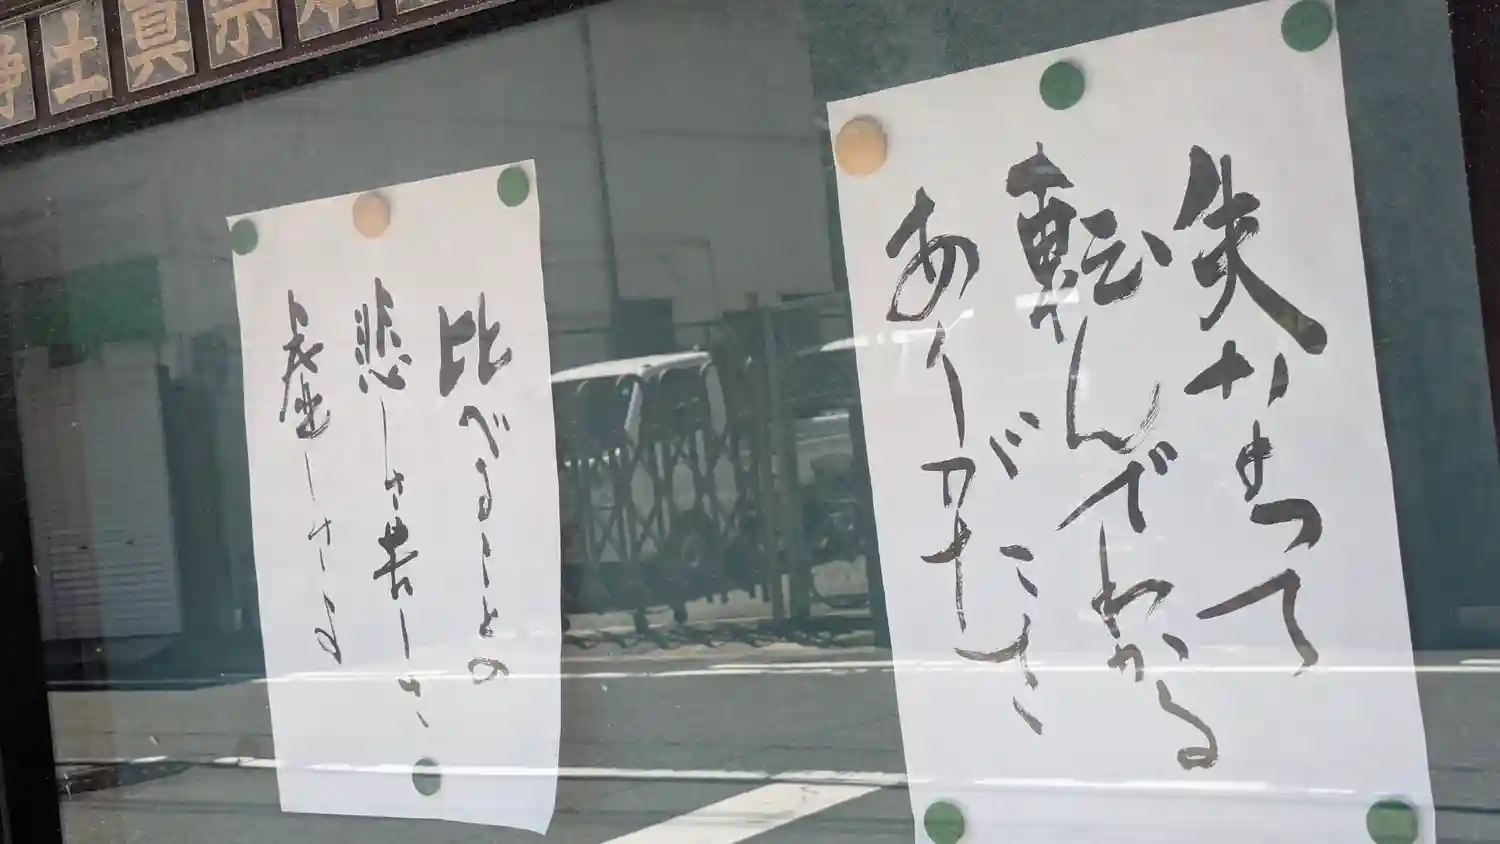 浄土真宗本
失なって
転んでわかる
ありがたさ
比べることの
悲しさ苦しさ
虚しさ